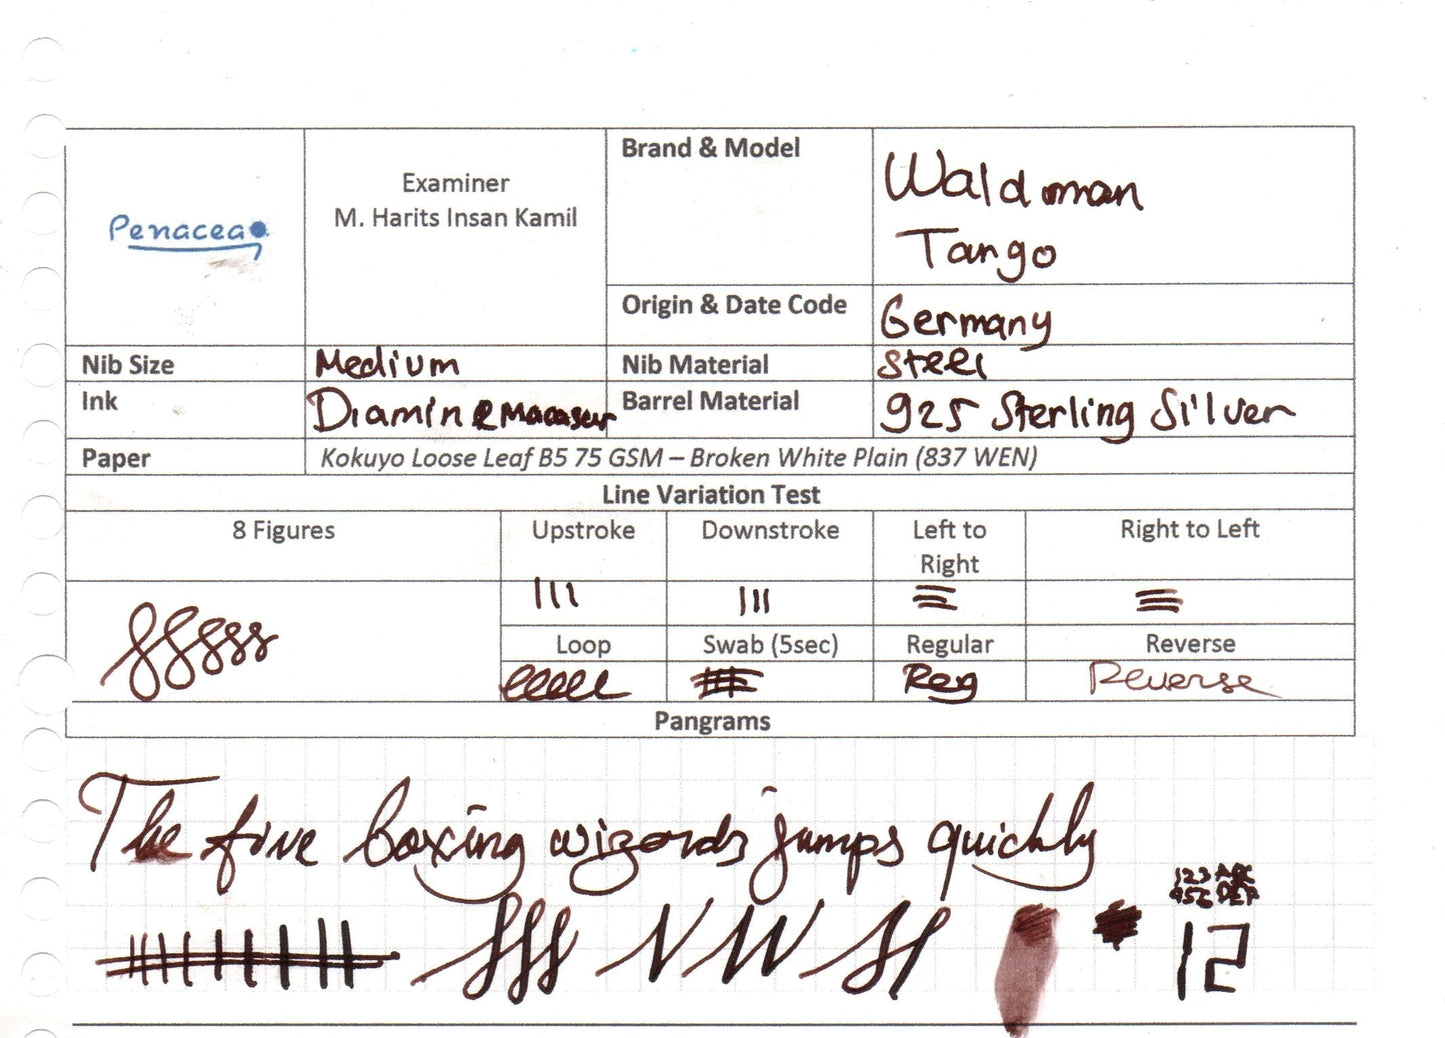 Penacea
Examiner
M. Harits Insan Kamil
Brand & Model
Waldman
Tango
Origin & Date Code
Germany
Nib Size
Medium
Nib Material
Steel
Ink
Diamine Macassar
Barrel Material
925 Sterling Silver
Paper
Kokuyo Loose Leaf B5 75 GSM – Broken White Plain (837 WEN)
Line Variation Test
8 Figures
Upstroke
Downstroke
Left to
Right
Right to Left
Loop
Swab (5sec)
Regular
Reverse
Reg
Reverse
Pangrams
The five boxing wizards jumps quickly
123 ABC
456 DEF
12